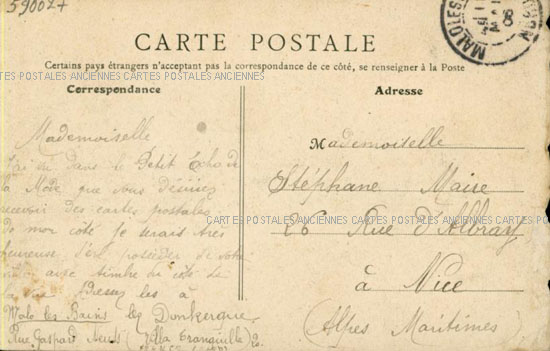 590027
MALO LES
CARTE POSTALE
Certains pays étrangers n'acceptant pas la correspondance de ce côté, se renseigner à la Poste
CARTES POSTALES ANCIENNES CARTES POSTALES ANCIENNES
Correspondance
Mademoiselle
J'ai vu dans le Petit Echo de
la Mode que vous désirez
recevoir des cartes postales
de mon côté je serais très
heureuse d'en posséder de votre
avec timbre du côté de
la vue Adressez les à
Malo les Bains lez Donkerque
Rue Gaspard Neuts (Villa Tranquille) 20
Adresse
Mademoiselle
Stéphane Maire
CARTES POSTALES ANCIENNES CARTES POSTALES ANCIENNES CARTES
26 Rue d'Albray
à Nice
(Alpes Maritimes)